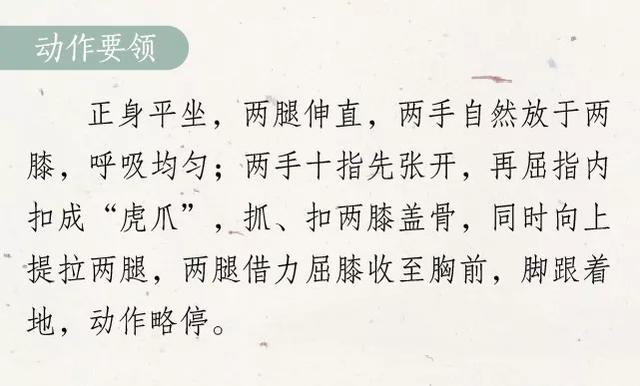 动作要领
正身平坐，两腿伸直，两手自然放于两
膝，呼吸均匀；两手十指先张开，再屈指内
扣成“虎爪”，抓、扣两膝盖骨，同时向上
提拉两腿，两腿借力屈膝收至胸前，脚跟着
地，动作略停。